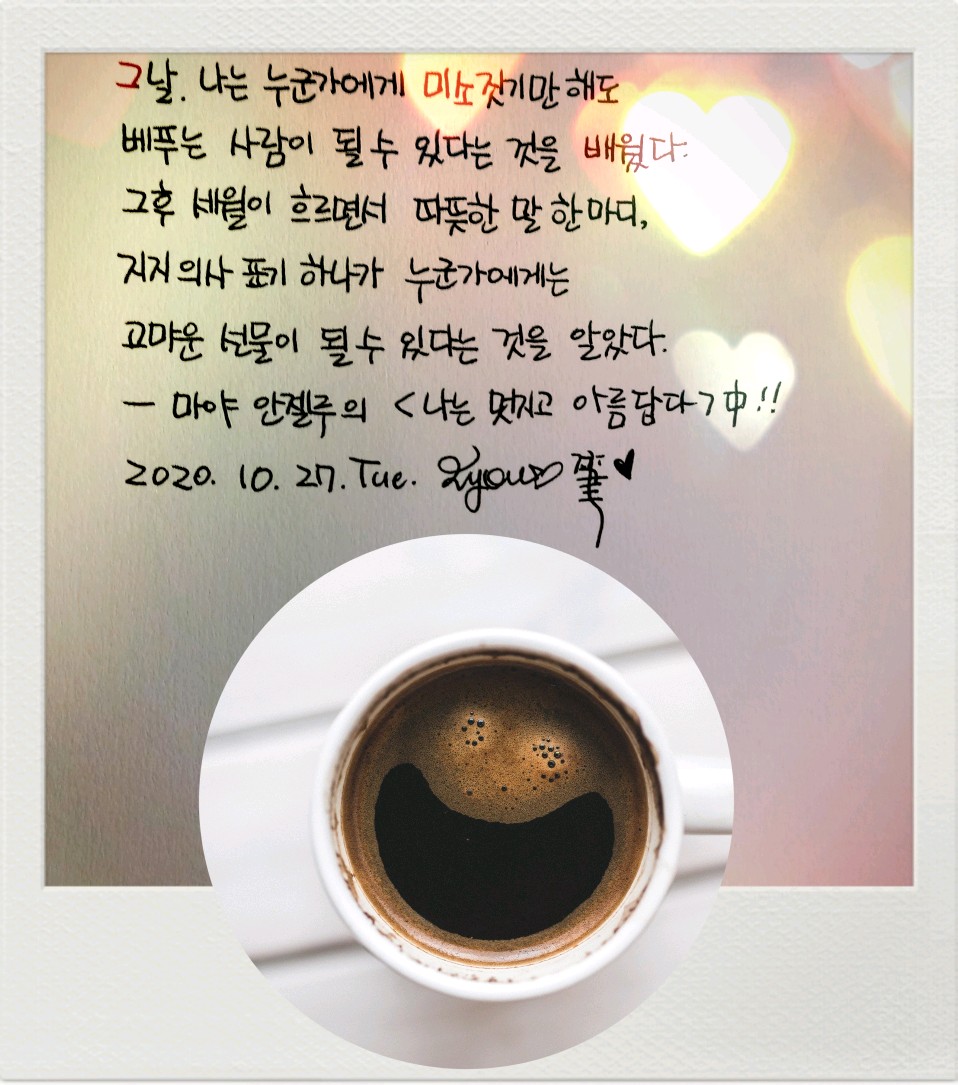 그날. 나는 누군가에게 미소짓기만해도
베푸는 사람이 될 수 있다는 것을 배웠다.
그후 세월이 흐르면서 따뜻한 말 한마디,
지지 의사 표기 하나가 누군가에게는
고마운 선물이 될 수 있다는 것을 알았다.
— 마야 안젤루의 <나는 멋지고 아름답다> 中!!
2020. 10. 27. Tue.